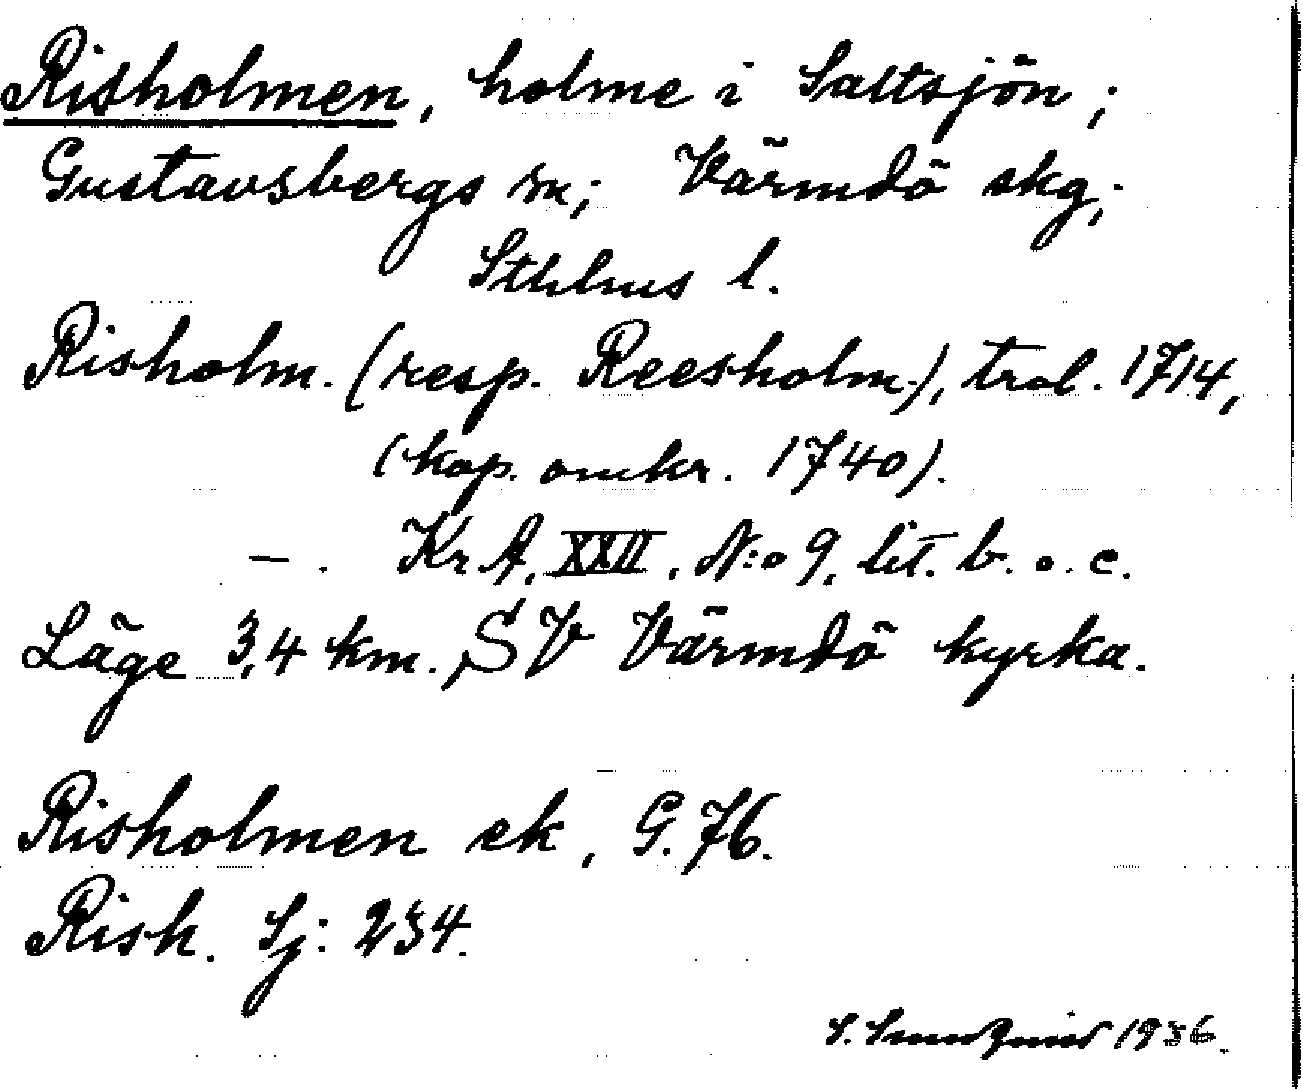 Risholmen, holme i Saltsjön;
Gustavsbergs sn; Värmdö skg;
Sthlms l.
Risholm. (resp. Reesholm), trol. 1714,
(kop. omkr. 1740).
— . KrA, XXII, N:o 9, lit. b. o. c.
Läge 3,4 km. SV Värmdö kyrka.
Risholmen ek, G. 76.
Rish. Sj: 234.
S. 1936.